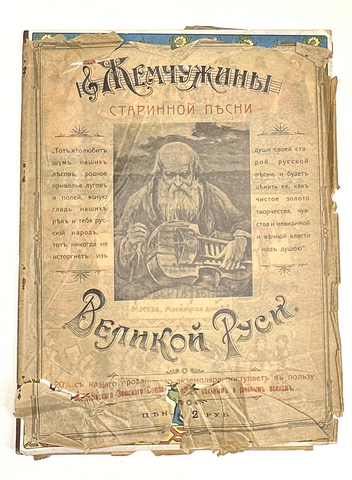 Жемчужины
СТАРИННОЙ ПѢСНИ
„Тотъ, кто любитъ
шумъ нашихъ
лѣсовъ, родное
приволье луговъ
и полей, ясную
гладь нашихъ
рѣкъ и тебя рус-
скій народъ,
тотъ никогда не
исторгнетъ изъ
души своей ста-
рой русской
пѣсни и будетъ
цѣнить ее, какъ
чистое золото
творчества, чув-
ства и невидимой
и вѣчной власти
надъ душою".
Москва, Мясницкая
Великой Руси.
20% съ каждаго экземпляра поступаетъ въ пользу
Земскаго Союза больнымъ и раненымъ воинамъ.
ЦѢНА 2 РУБ